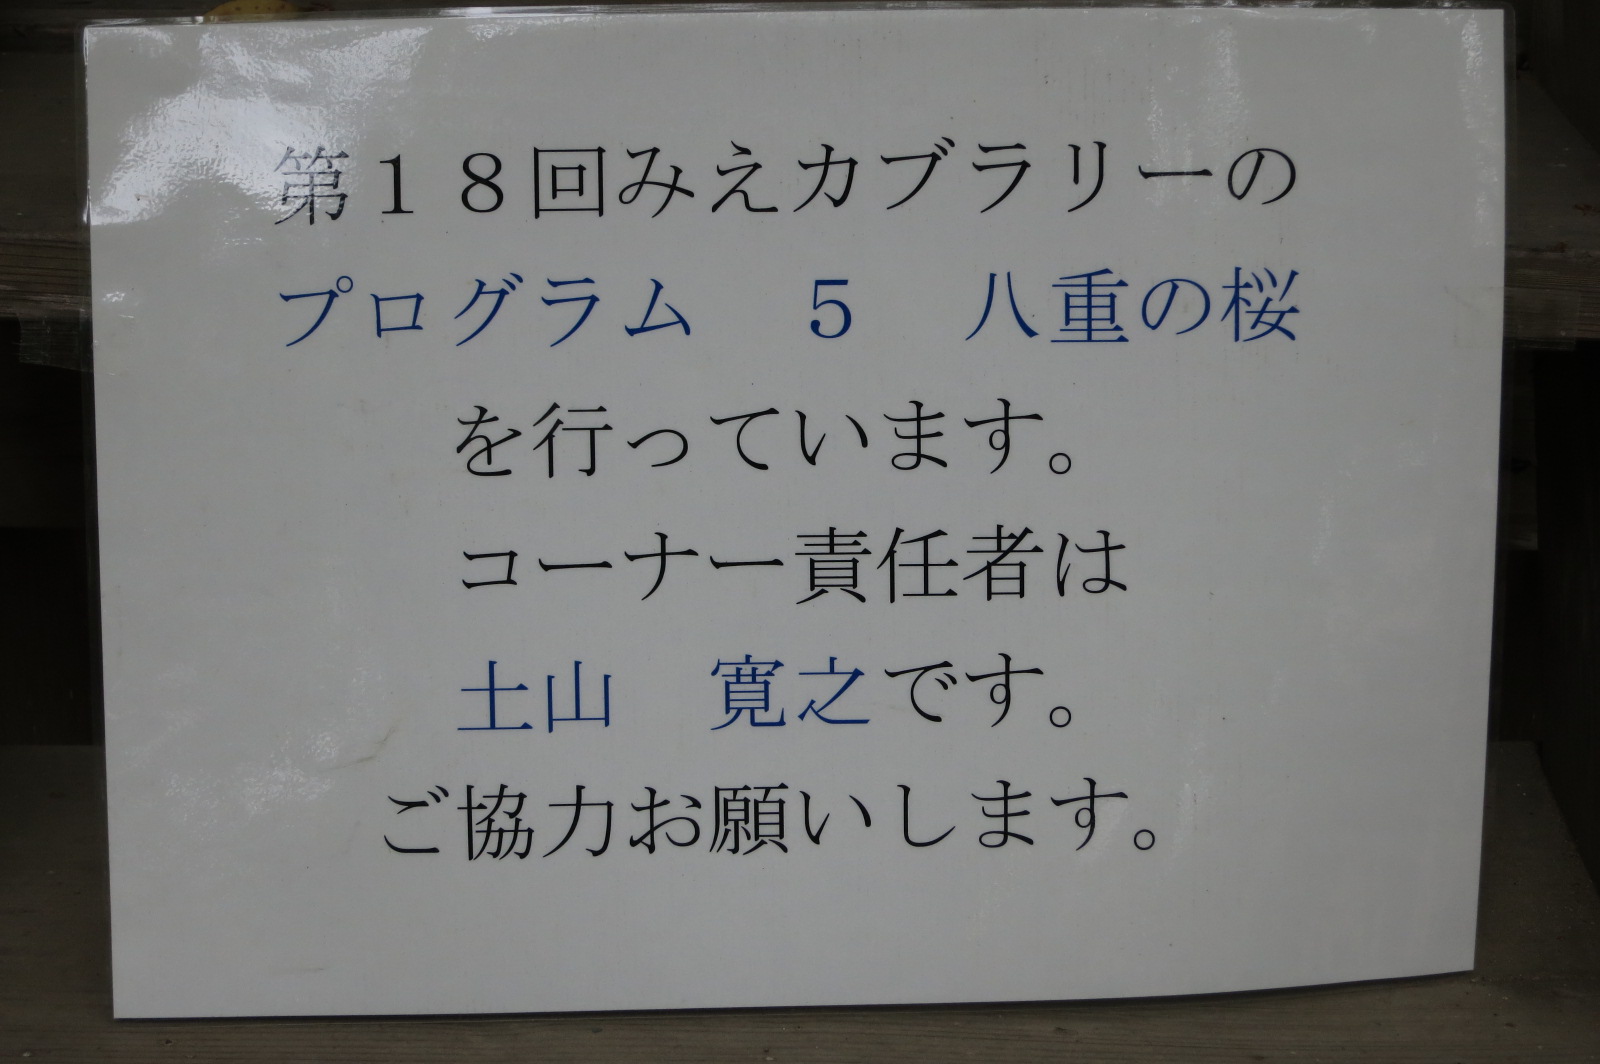 第１８回みえカブラリーの
プログラム　５　八重の桜
を行っています。
コーナー責任者は
土山　寛之です。
ご協力お願いします。